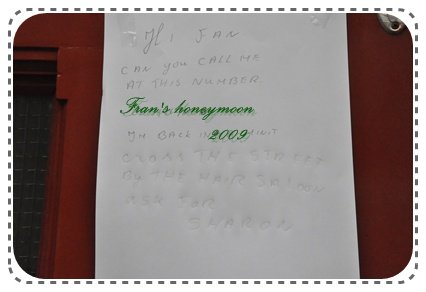 Hi FAN
CAN you CALL ME
AT THIS NUMBER.
Fran's honeymoon
I'M BACK IN
2009
CROSS THE STREET
By THE HAIR SALOON
ASK FOR
SHARON